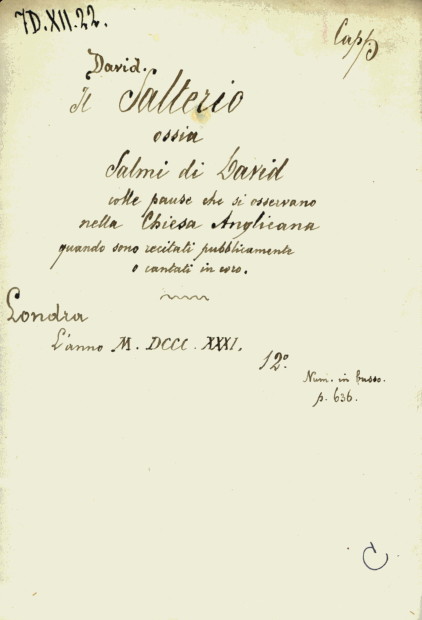 7D.XII.22.
Capp
David.
Il Salterio
ossia
Salmi di David
colle pause che si osservano
nella Chiesa Anglicana
quando sono recitati pubblicamente
o cantati in coro.
Londra
L'anno M. DCCC. XXXI.
12º
Num. in basso.
p. 636.
C